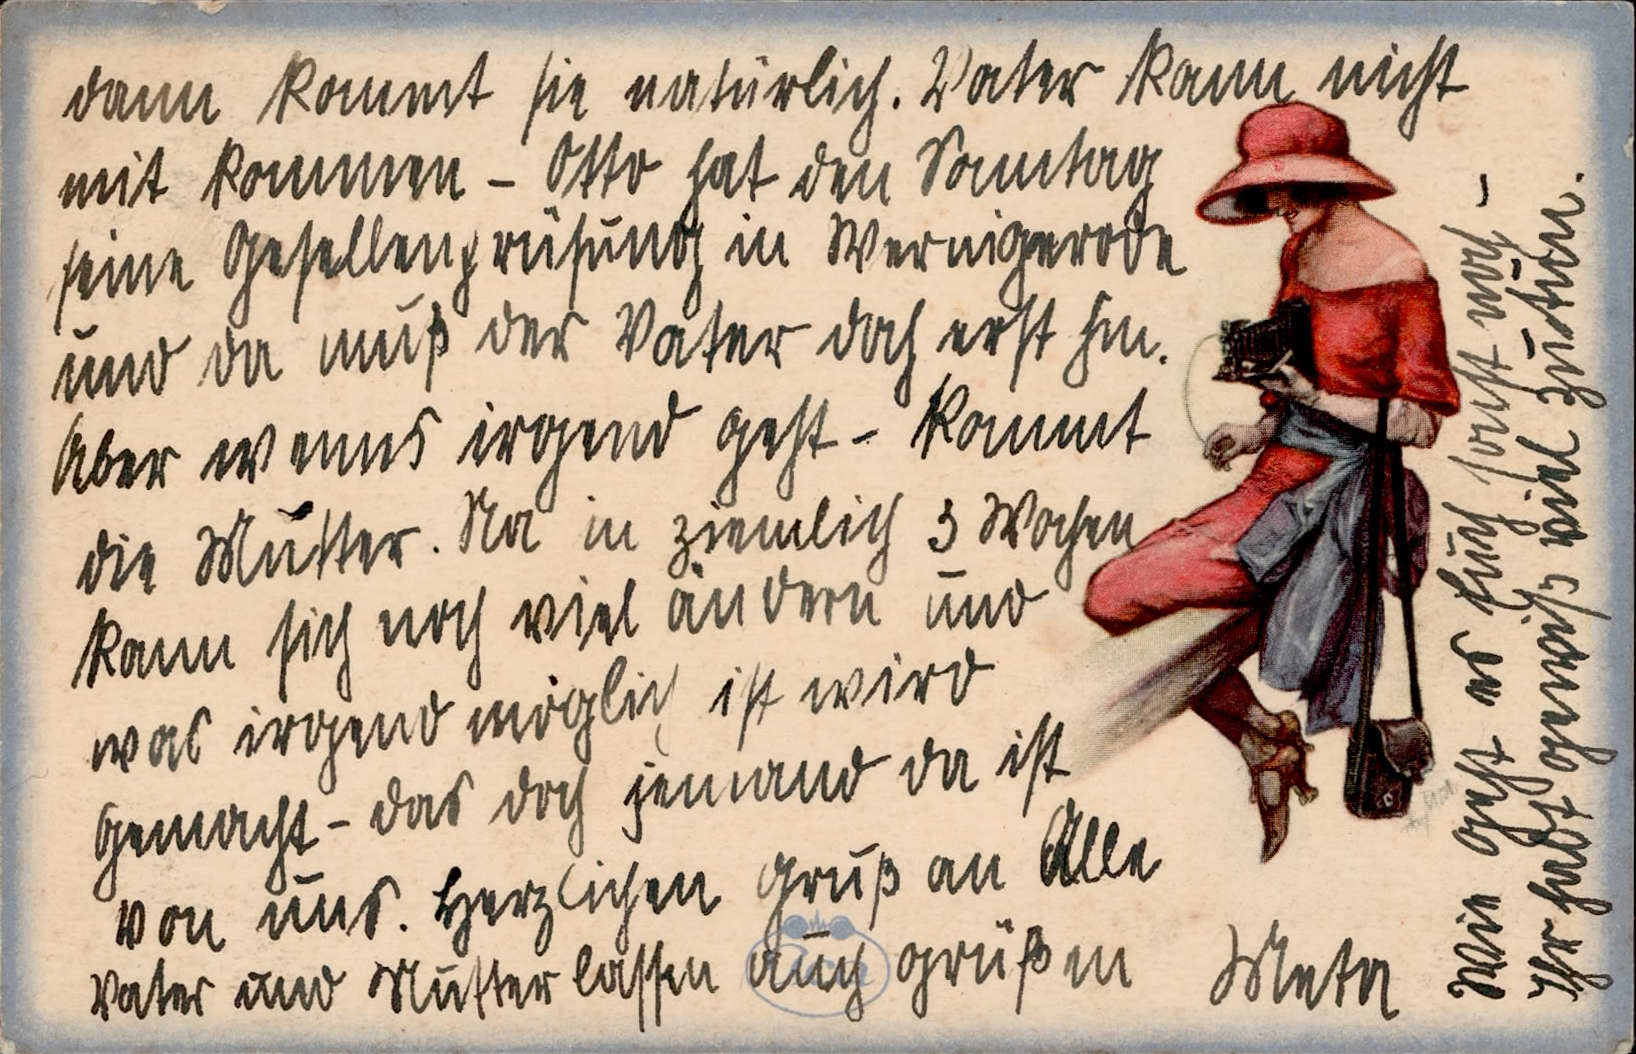 dann kommt sie natürlich. Vater kann nicht
mit kommen – Otto hat den Sonntag
seine Gesellenprüfung in Wernigerode
und da muß der Vater doch erst hin.
Aber wenns irgend geht – kommt
die Mutter. Na in ziemlich 3 Wochen
kann sich noch viel ändern und
was irgend möglich ist wird
gemacht – das doch jemand da ist
von uns. Herzlichen Gruß an Alle
Vater und Mutter lassen auch grüßen Meta
Wie geht es Euch sonst noch –
Ihr habt gewiß viel zu tun.